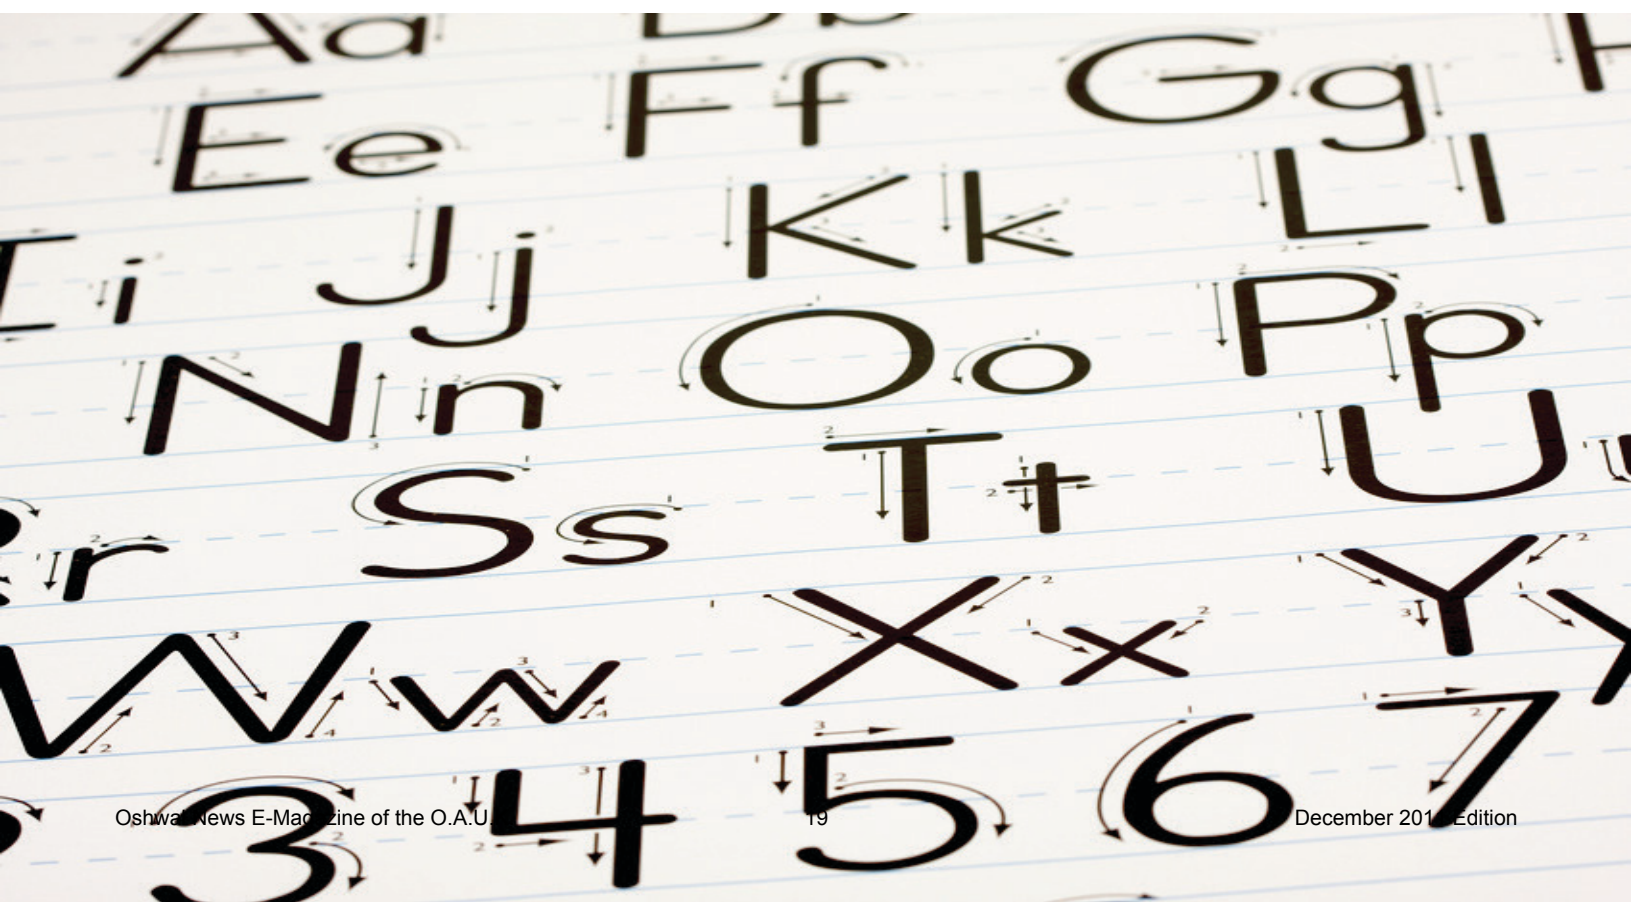 Aa
Ee Ff Gg
Ii Jj Kk Ll
Nn Oo Pp
r Ss Tt U
Ww Xx Y
3 4 5 6 7
Oshwal News E-Magazine of the 19 December Edition